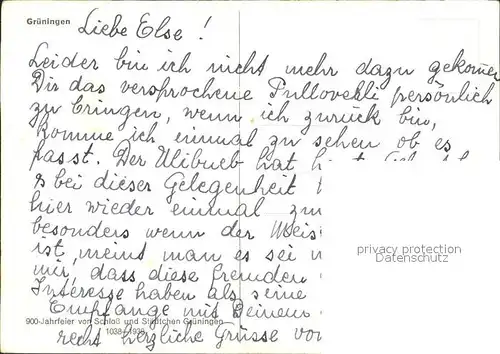 Grüningen
Liebe Else!
Leider bin ich nicht mehr dazu gekommen
Dir das versprochene Pullovekli persönlich
zu bringen, wenn ich zurück bin,
komme ich einmal zu sehen ob es
passt. Der Ulibueb hat
bei dieser Gelegenheit
hier wieder einmal
besonders wenn der
ist, meint man es sei
mir, dass diese fremden
Interesse haben als seine
Empfange mit Deinem
recht herzliche Grüsse von
privacy protection
Datenschutz
900-Jahrfeier von Schloß und Städtchen Grüningen
1038-1938